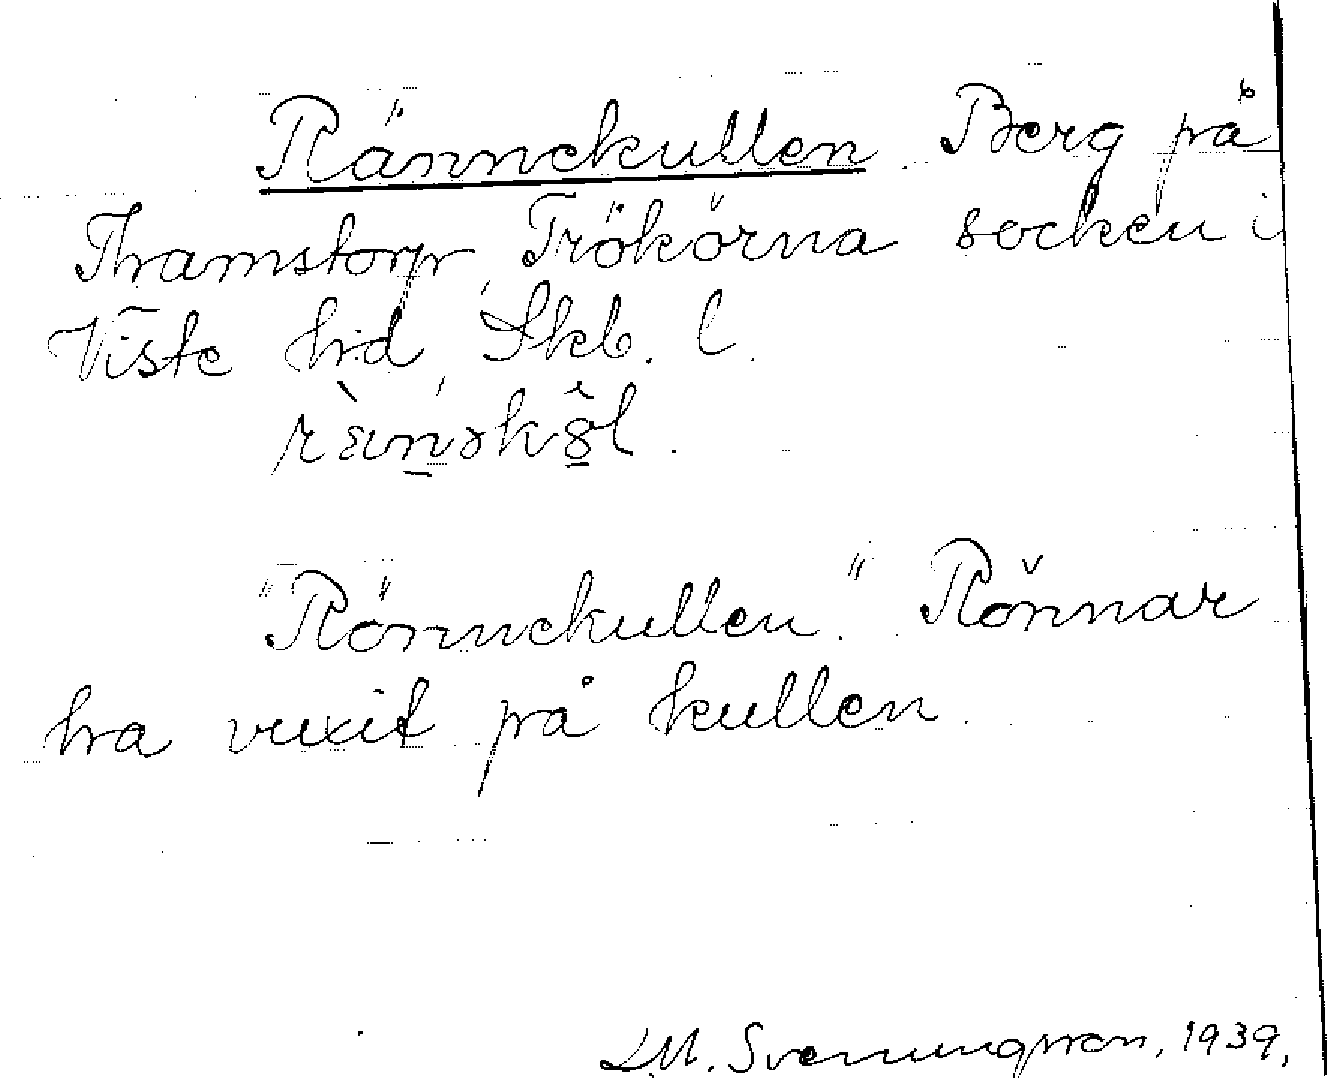 Rännekullen. Berg på
Thamstorp, Trökörna socken i
Viste hd, Skb. l.
"Rönnekullen." Rönnar
ha vuxit på kullen.
D.M. Svenungsson, 1939.